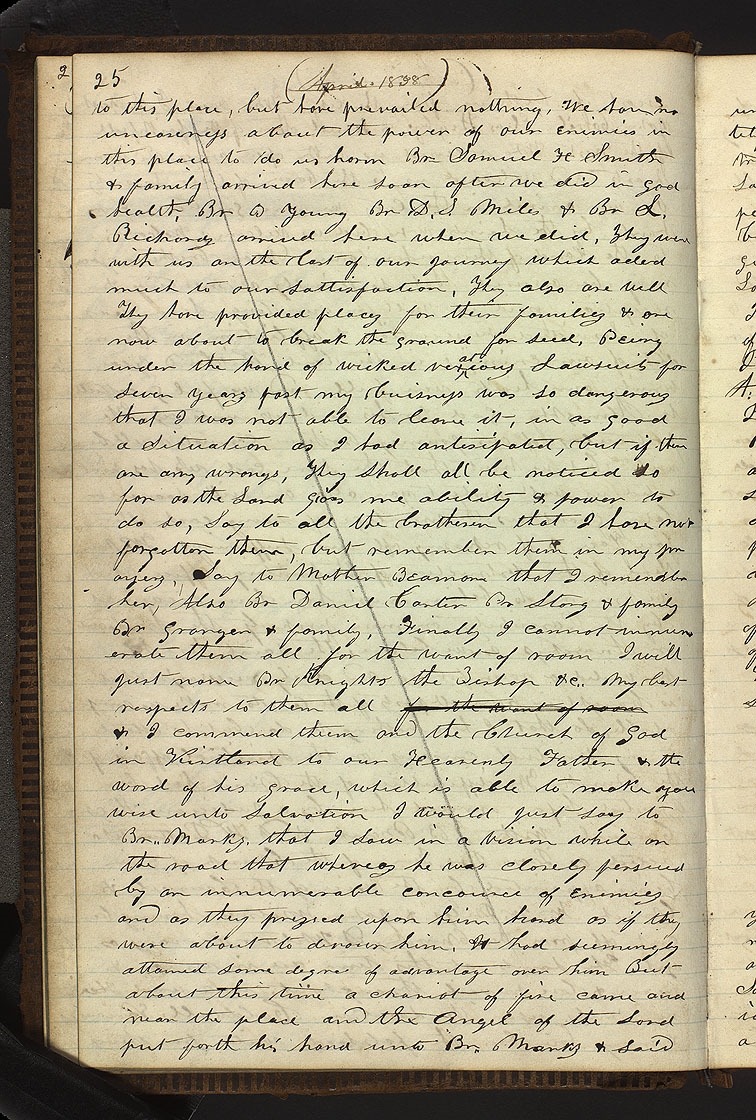 25 (April. 1838)
to this place, but have prevailed nothing, We have no
uneaseness about the power of our enimies in
this place to do us harm Br Samuel H Smith
& family arrived here soon after we did in good
health, Br B Young Br D. S. Miles & Br L.
Richards arrived here when we did, They were
with us on the last of our journey which aded
much to our sattisfaction, They also are well
They have provided places for their families & are
now about to break the ground for seed, Being
under the hand of wicked vexatious Lawsuits for
seven years past my buisness was so dangerous
that I was not able to leave it, in as good
a situation as I had antisipated, but if there
are any wrongs, They shall all be noticed so
far as the Lord gives me ability & power to
do so, Say to all the brotheren that I have not
forgotten them, but remember them in my pr
ayers, Say to Mother Beamans that I remember
her, Also Br Daniel Carter Br Strong & family
Br Granger & family, Finally I cannot innum
erate them all for the want of room I will
just name Br Knights the Bishop &c.. My best
respects to them all for the want of room
& I commend them and the Church of God
in Kirtland to our Heavenly Father & the
word of his grace, which is able to make you
wise unto Salvation I would just say to
Br.. Marks, that I saw in a vision while on
the road that whereas he was closely persued
by an innumerable concource of enimies
and as they pressed upon him hard as if they
were about to devour him, & had seemingly
attained some degree of advantage over him But
about this time a chariot of fire came and
near the place and the Angel of the Lord
put forth his hand unto Br. Marks & said